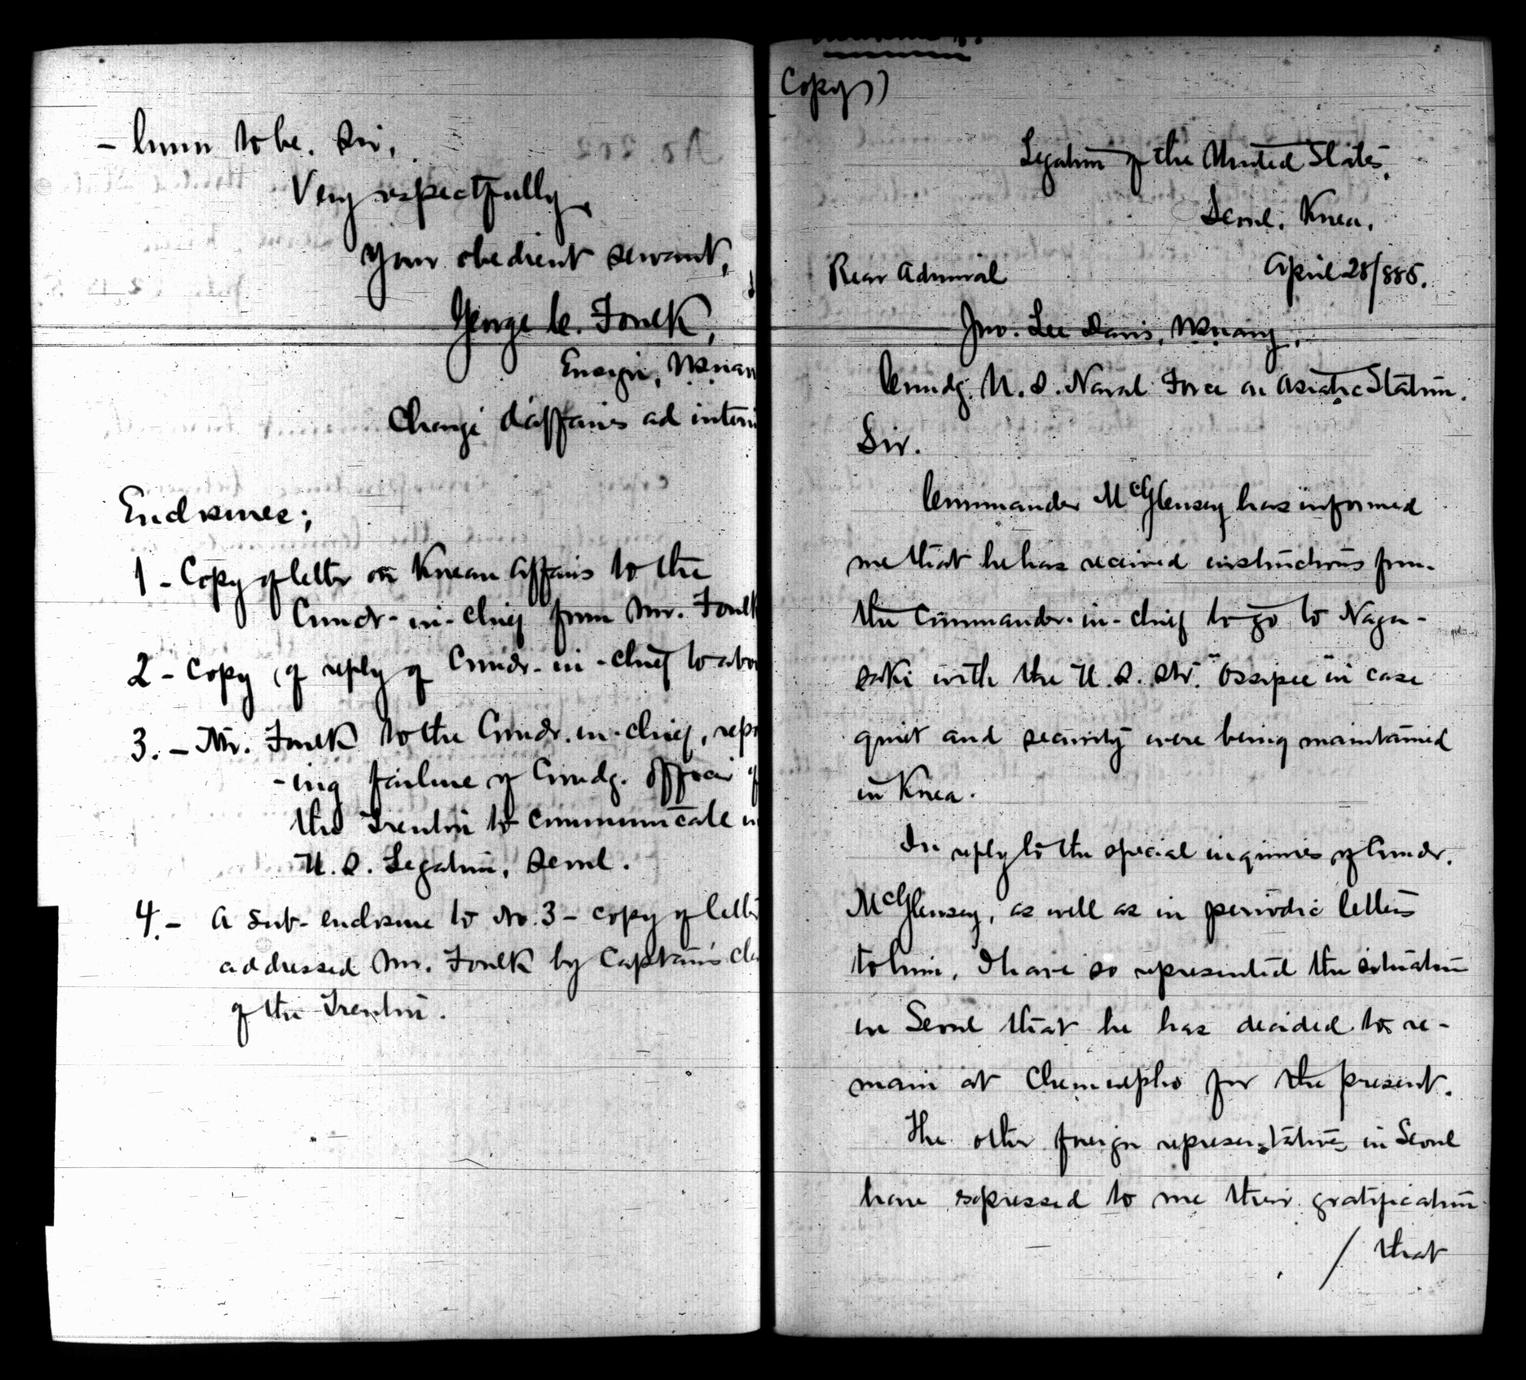 - honor to be, Sir,
Very respectfully,
Your obedient servant,
George C. Foulk,
Ensign,
Chargé d'affaires ad
Enclosures;
1 - Copy of letter on Korean Affairs to the
Comdr-in-chief from Mr. Foulk
2 - Copy of reply of Comdr-in-chief to
3. - Mr. Foulk to the Comdr.in-chief,
-ing failure of Comdg. officer
the Trenton to communicate
U.S. Legation, Seoul.
4. - A sub-enclosure to No. 3 - copy of letter
addressed Mr. Foulk by Captain's
of the Trenton.
Copy)
Legation of the United States,
Seoul, Korea,
Rear Admiral April 28/885.
Jno. Lee Davis, U.S. Navy,
Comdg. U.S. Naval Force on Asiatic Station.
Sir.
Commander McGlensey has informed
me that he has received instructions from
the Commander-in-chief to go to Naga-
saki with the U.S. Str. "Ossipee" in case
quiet and security were being maintained
in Korea.
In reply to the special inquiries of Comdr.
McGlensey, as well as in periodic letters
to him, I have so represented the situation
in Seoul that he has decided to re-
main at Chemulpho for the present.
The other foreign representatives in Seoul
have expressed to me their gratification
/ that